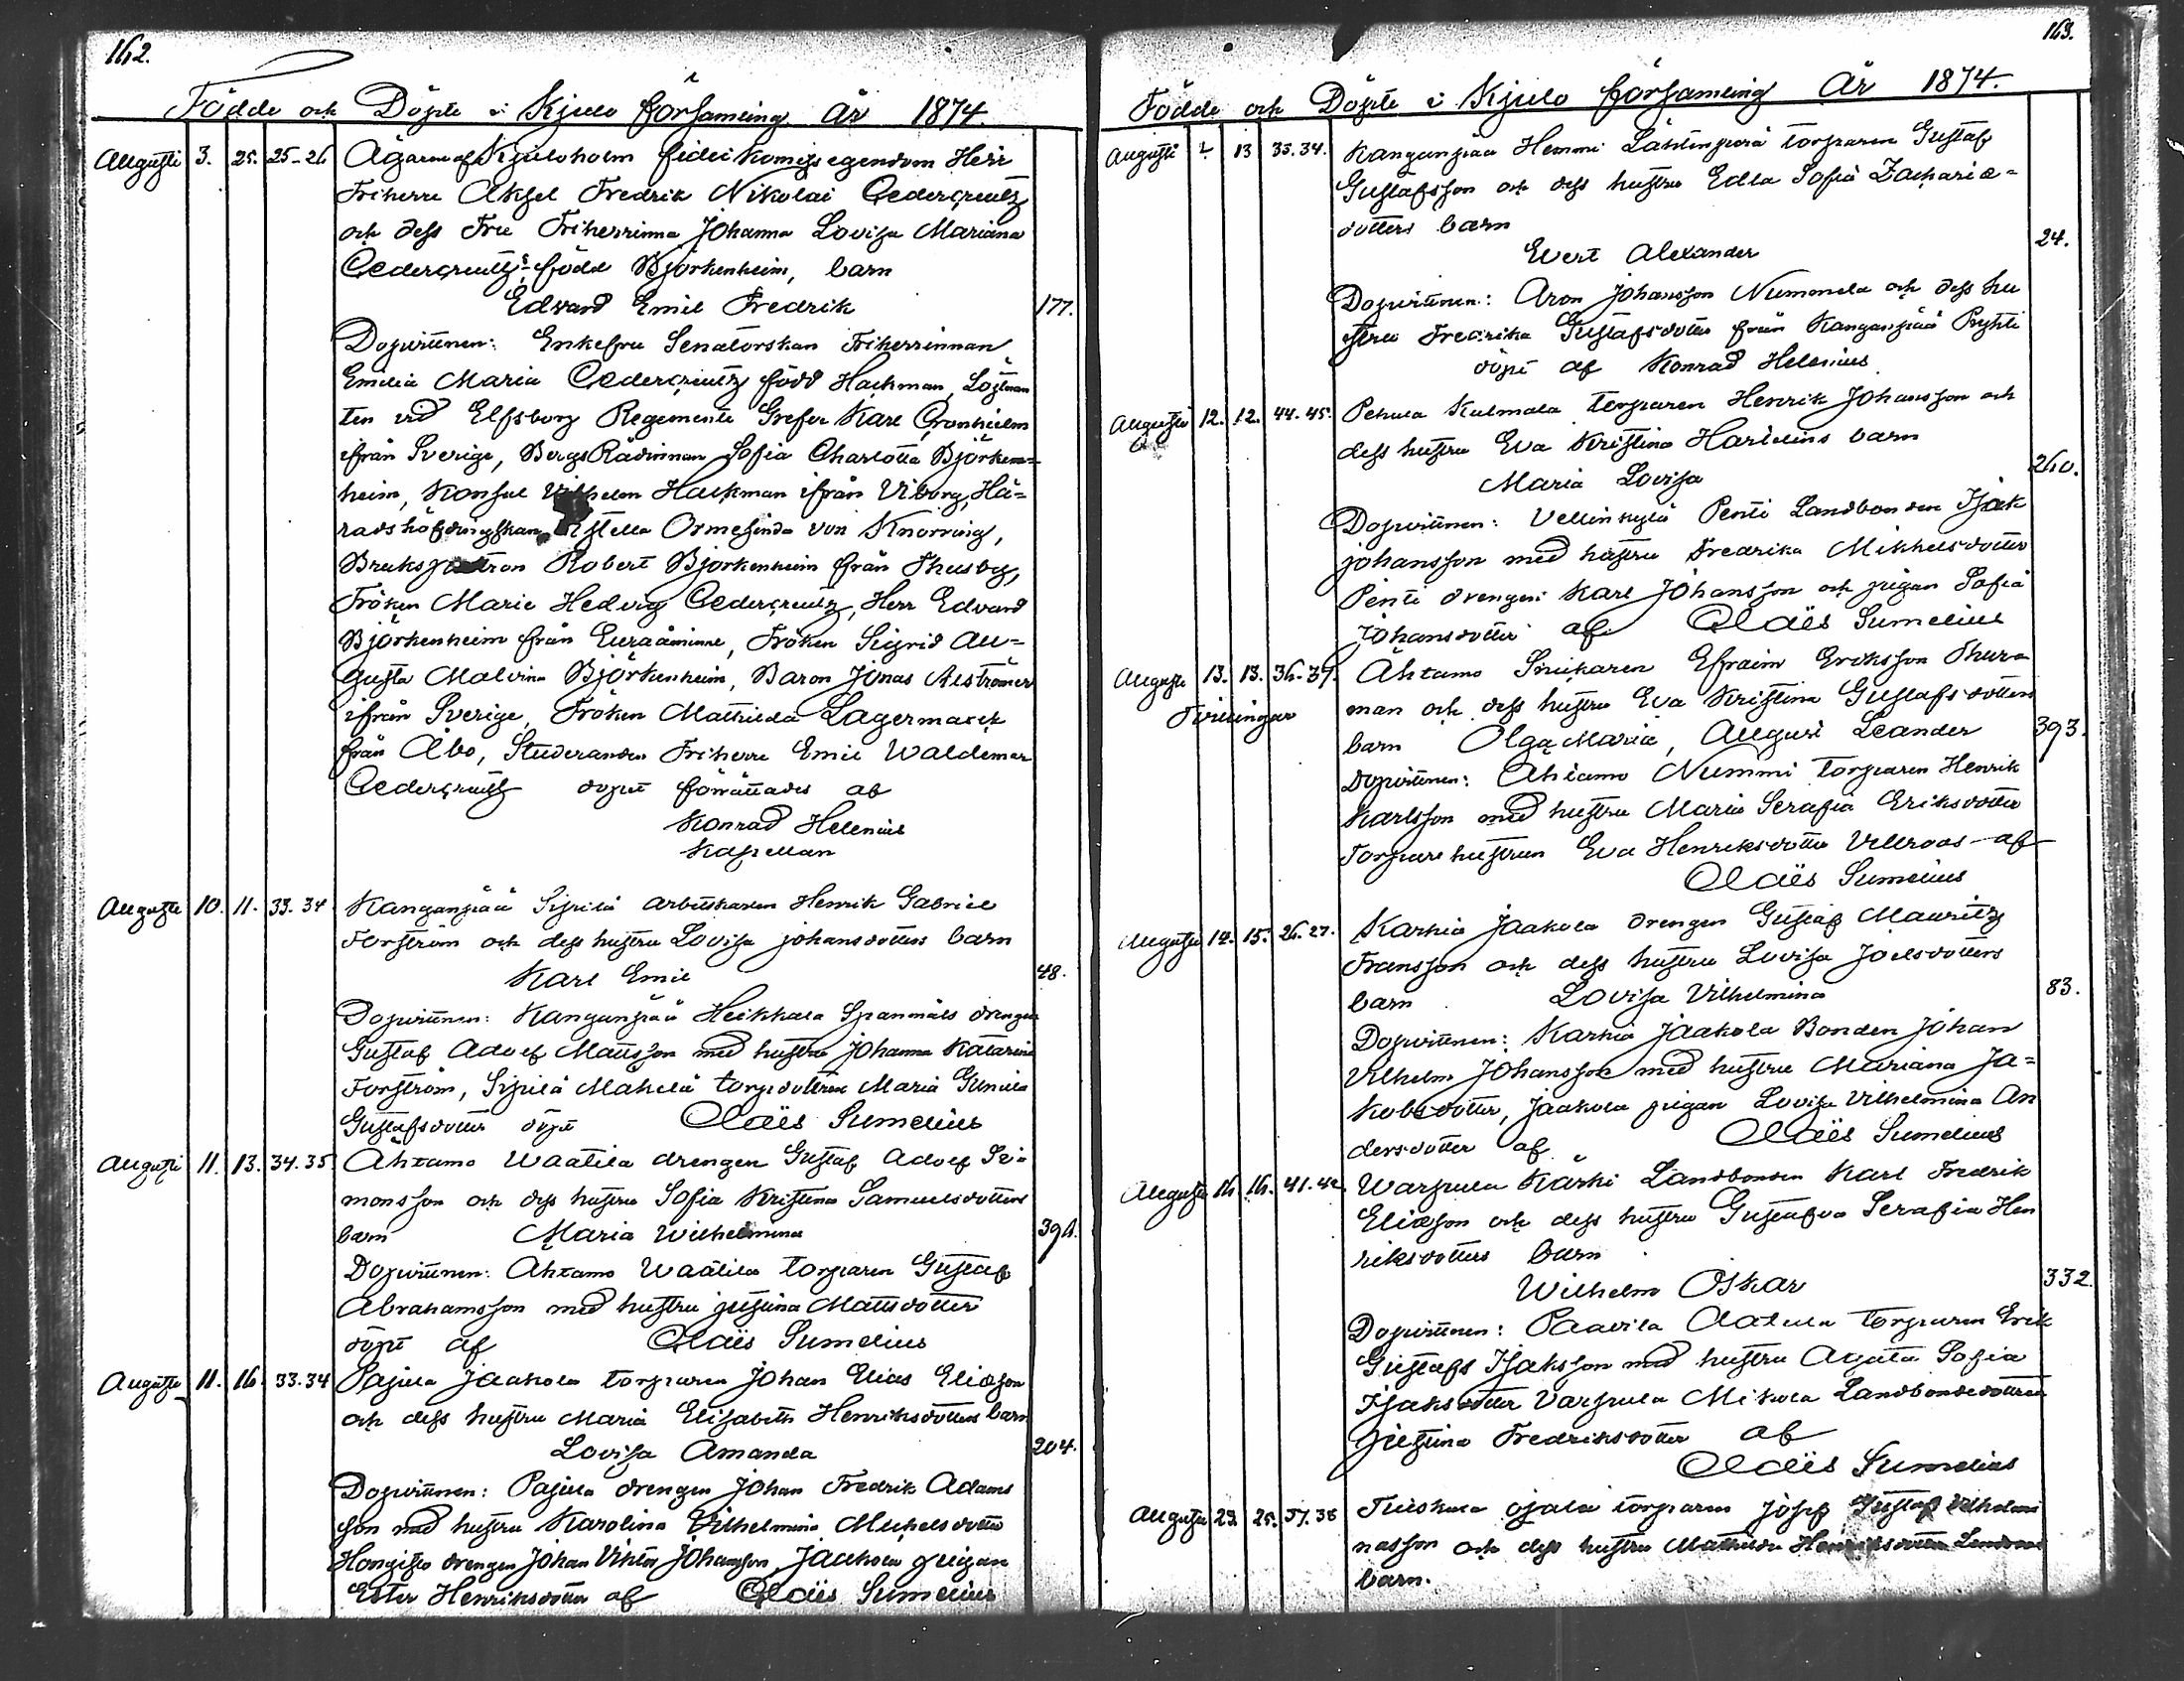 162.
Födde och Döpte i Kjulo församling År 1874.
Augusti 3. 25. 25-26 Ägaren af Kjuloholm fideikomiss egendom Herr
Friherre Aksel Fredrik Nikolai Cedercreutz
och dess Fru Friherrinna Johanna Lovisa Mariana
Cedercreutz född Björkenheim, barn
Edvard Emil Fredrik 177.
Dopvittnen: Enkefru Senatorskan Friherrinnan
Emilia Maria Cedercreutz född Hackman, Löjtnan
ten vid Elfsborg Regemente Grefve Karl Cronhielm
ifrån Sverige, BergsRådinnan Sofia Charlotta Björken=
heim, Konsul Vilhelm Hackman ifrån Viborg, Hä=
radshöfdingskan Stella Ormesinda von Knorring,
Brukspatron Robert Björkenheim från
Fröken Marie Hedvig Cedercreutz, Herr Edvard
Björkenheim från Euraåminne, Fröken Sigrid Au=
gusta Malvina Björkenheim, Baron Jonas Alströmer
ifrån Sverige, Fröken Mathilda Lagermarck
från Åbo, Studeranden Friherre Emil Waldemar
Cedercreutz dopet förrättades af
Konrad Helenius
Kapellan
Augusti 10. 11. 33.34 Kanganpää Sipilä arbetskarlen Henrik Gabriel
Forström och dess hustru Lovisa johansdotters barn
Karl Emil 48.
Dopvittnen: Kanganpää Heikkala Spanmåls drengen
Gustaf Adolf Mattsson med hustru Johanna Katarina
Forström, Sipilä Mäkelä torpdottren Maria Gunila
Gustafsdotter döpt Claës Sumelius
Augusti 11. 13. 34.35 Ähtamo Waatila drengen Gustaf Adolf Si=
monsson och dess hustru Sofia Kristina Samuelsdotters
barn Maria Wilhelmina 394.
Dopvittnen: Ahtamo Waatila torparen Gustaf
Abrahamsson med hustru justina Mattsdotter
döpt af Claës Sumelius
Augusti 11. 16. 33.34 Pajula Jaakola torparen Johan Elias Eliæson
och dess hustru Maria Elisabeth Henriksdotters barn
Lovisa Amanda 204.
Dopvittnen: Pajula drengen Johan Fredrik Adams
son med hustru Karolina Vilhelmina Michelsdotter
Hongisto drengen Johan Viktor Johansson, Jaakola pigan
Ester Henriksdotter af Claës Sumelius
163.
Födde och Döpte i Kjulo församling År 1874.
Augusti 13 33.34. Kanganpää Hemmi Lähtinperä torparen Gustaf
Gustafsson och dess hustru Edla Sofia Zachariæ=
dotters barn
Evert Alexander 24.
Dopvittnen: Aron Johansson Nummela och dess hu
stru Fredrika Gustafsdotter från Kanganpää Pryhti
döpt af Konrad Helenius
Augusti 12. 12. 44.45. Pehula Kulmala torparen Henrik Johansson och
dess hustru Eva Kristina Harielins barn
Maria Lovisa 260.
Dopvittnen: Vellinkylä Penti Landbonden Isak
johansson med hustru Fredrika Mikkelsdotter
Penti drengen Karl Johansson och pigan Sofia
Johansdotter af Claës Sumelius
Augusti 13. 13. 36-37. Ähtamo Snikaren Efraim Eriksson Thura
man och dess hustru Eva Kristina Gustafsdotters
Tvillingar
barn Olga Maria, August Leander 393.
Dopvittnen: Ahtamo Nummi torparen Henrik
Karlsson med hustru Maria Serafia Eriksdotter
Torpare hustrun Eva Henriksdotter Vellroos af
Claës Sumelius
Augusti 14. 15. 26.27. Karhia Jaakola drengen Gustaf Mauritz
Fransson och dess hustru Lovisa Joelsdotters
barn Lovisa Vilhelmina 83.
Dopvittnen: Karhia Jaakola Bonden Johan
Vilhelm Johansson med hustru Mariana Ja=
kobsdotter, Jaakola pigan Lovisa Vilhelmina An
dersdotter af Claës Sumelius
Augusti 16. 16. 41.42. Warpula Kärki Landbonden Karl Fredrik
Eliæson och dess hustru Gustafva Serafia Hen
riksdotters barn
Wilhelm Oskar 332.
Dopvittnen: Paavila Aatula torparen Erik
Gustafs Isaksson med hustru Agata Sofia
Isaksdotter Varpula Mikola Landbondedottren
Justina Fredriksdotter af
Claës Sumelius
Augusti 23. 25. 37.38 Tuiskula ojala torparen Josef Gustaf
nasson och dess hustru Mathilda Henriksdotter
barn.